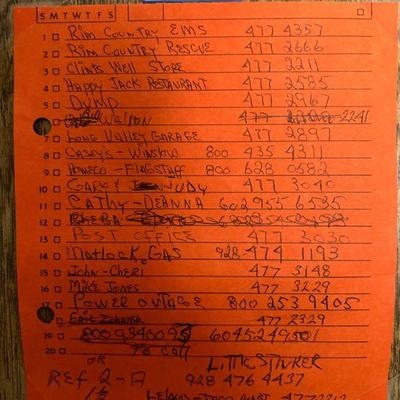 S M T W T F S
1 Rim Country EMS 477 4357
2 Rim Country Rescue 477 2666
3 Clints Well Store 477 2211
4 Happy Jack Restaurant 477 2585
5 Dump 477 2967
6 Walton 477 2241
7 Long Valley Garage 477 2897
8 Caseys - Winslow 800 435 4311
9 Ameco - Flagstaff 800 628 0582
10 Gary Judy 477 3040
11 Cathy - Deanna 602 955 6535
12
13 Post Office 477 3030
14 Matlock Gas 928-474 1193
15 John - Cheri 477 3148
16 Mike Jones 477 3229
17 Power outage 800 253 9405
18 Eric 477-2329
19 604524 9501
20 To call
or Little Stinker
Ref 2-17 928 476 4437